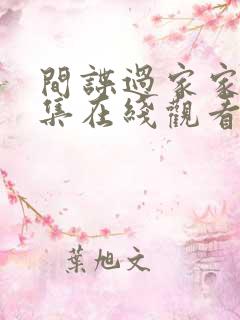 間諜過家家
集在綫觀看
葉旭文